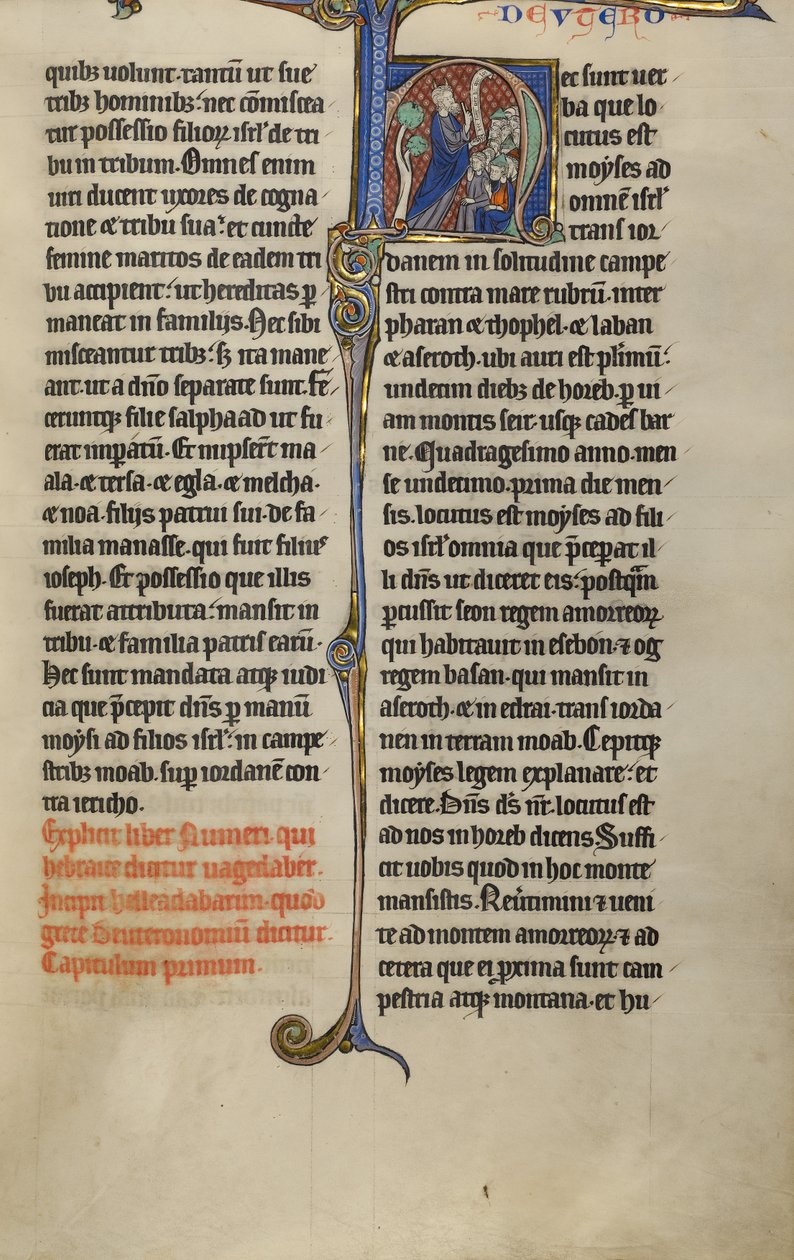 DEVTERO
quibꝫ uolunt·tantū ut sue
tribꝫ hominibꝫ: nec cōmiscea
tur possessio filioꝝ isrl̕ de tri
bu in tribum. Omnes enim
uiri ducent uxores de cogna
tione ⁊ tribu sua: et cuncte
femine maritos de eadem tri
bu accipient: ut hereditas ꝑ
maneat in familijs. Nec sibi
misceantur tribꝫ: sꝫ ita mane
ant·ut a dn̄o separate sunt. Fe
ceruntqꝫ filie salphaad ut fu
erat imꝑatū. Et nupser̄t ma
ala·⁊ tersa·⁊ egla·⁊ melcha·
⁊ noa·filijs patrui sui·de fa
milia manasse·qui fuit filius
ioseph. Et possessio que illis
fuerat attributa: mansit in
tribu·⁊ familia patris earū·
Hec sunt mandata atqꝫ iudi
cia que p̄cepit dn̄s ꝑ manū
moysi ad filios isrl̕: in campe
stribꝫ moab·suꝑ iordanē con
tra iericho.
Explicit liber Numeri·qui
hebraice dicitur uagedaber.
Incipit helleadabarim·quod
grece Deuteronomiū dicitur.
Capitulum primum.
Hec sunt uer
ba que lo
cutus est
moyses ad
omnē isrl̕
trans ior
danem in solitudine campe
stri contra mare rubrū·inter
pharan ⁊ thophel·⁊ laban
⁊ aseroth·ubi auri est pl̕imū:
undecim diebꝫ de horeb·ꝑ ui
am montis seir·usqꝫ cades bar
ne. Quadragesimo anno·men
se undecimo·prima die men
sis·locutus est moyses ad fili
os isrl̕ omnia que p̄ceperat il
li dn̄s ut diceret eis: postqͣm
ꝑcussit seon regem amorreoꝝ
qui habitauit in esebon·⁊ og
regem basan·qui mansit in
aseroth·⁊ in edrai·trans iorda
nen in terram moab. Cepitqꝫ
moyses legem explanare: et
dicere. Dn̄s ds̄ nr̄·locutus est
ad nos in horeb dicens. Suffi
cit uobis quod in hoc monte
mansistis. Reu̕timini ⁊ ueni
te ad montem amorreoꝝ·⁊ ad
cetera que ei ꝓxima sunt cam
pestria atqꝫ montana·et hu